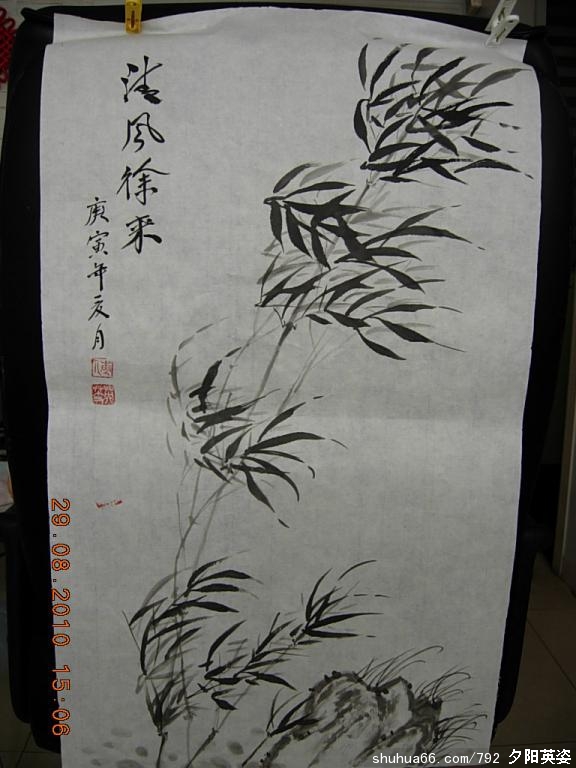 清风徐来
庚寅年夏月
29.08.2010 15:06
shuhua66.com/792 夕阳英姿